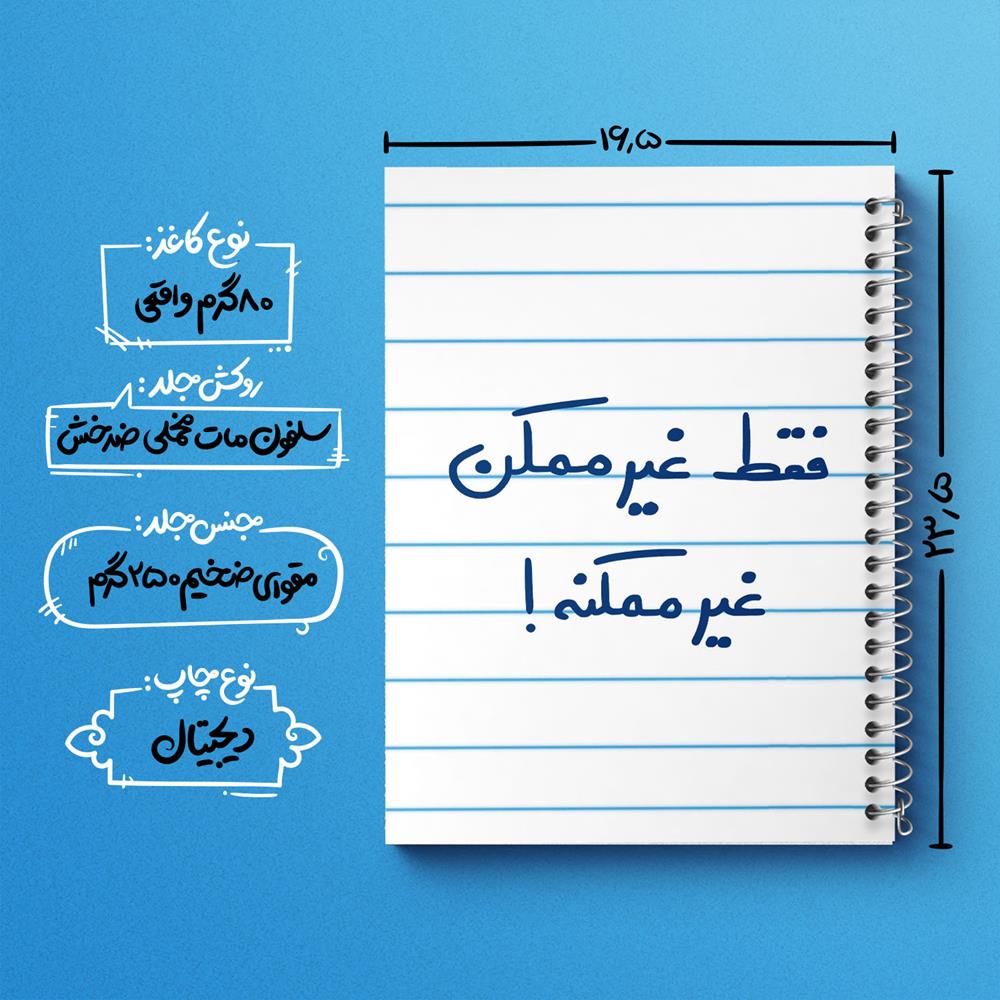 ۱۶٫۵
۲۳٫۵
فقط غیر ممکن
غیر ممکنه!
نوع کاغذ:
۸۰گرم واقعی
روکش جلد:
سلفون مات مخملی ضدخش
جنس جلد:
مقوای ضخیم ۲۵۰گرم
نوع چاپ:
دیجیتال